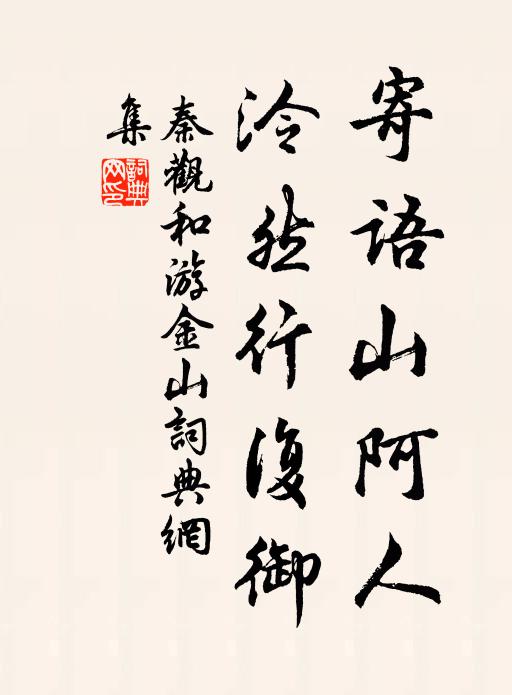 寄語山阿人
泠然行復御
秦觀和游金山詞典網
集
詞典網印